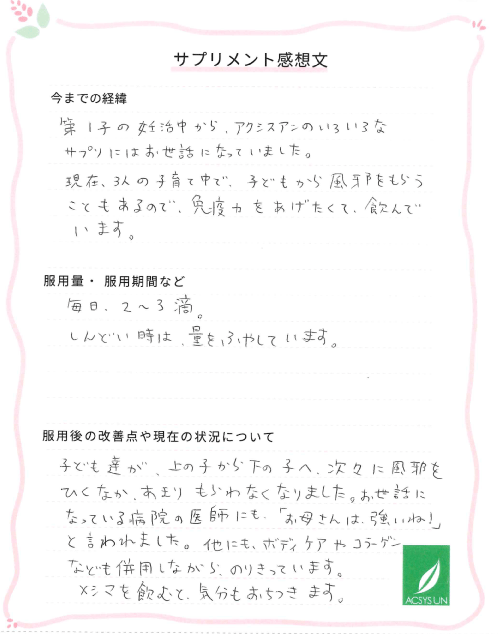 サプリメント感想文
今までの経緯
第1子の妊活中から、アクシスアンのいろいろな
サプリにはお世話になっていました。
現在、3人の子育て中で、子どもから風邪をもらう
こともあるので、免疫力をあげたくて、飲んで
います。
服用量・服用期間など
毎日、2〜3滴。
しんどい時は、量をふやしています。
服用後の改善点や現在の状況について
子ども達が、上の子から下の子へ、次々に風邪を
ひくなか、あまりもらわなくなりました。お世話に
なっている病院の医師にも、「お母さんは、強いね!」
と言われました。他にも、ボディケアやコラーゲン
なども併用しながら、のりきっています。
メシマを飲むと、気分もおちつきます。
ACSYS UN